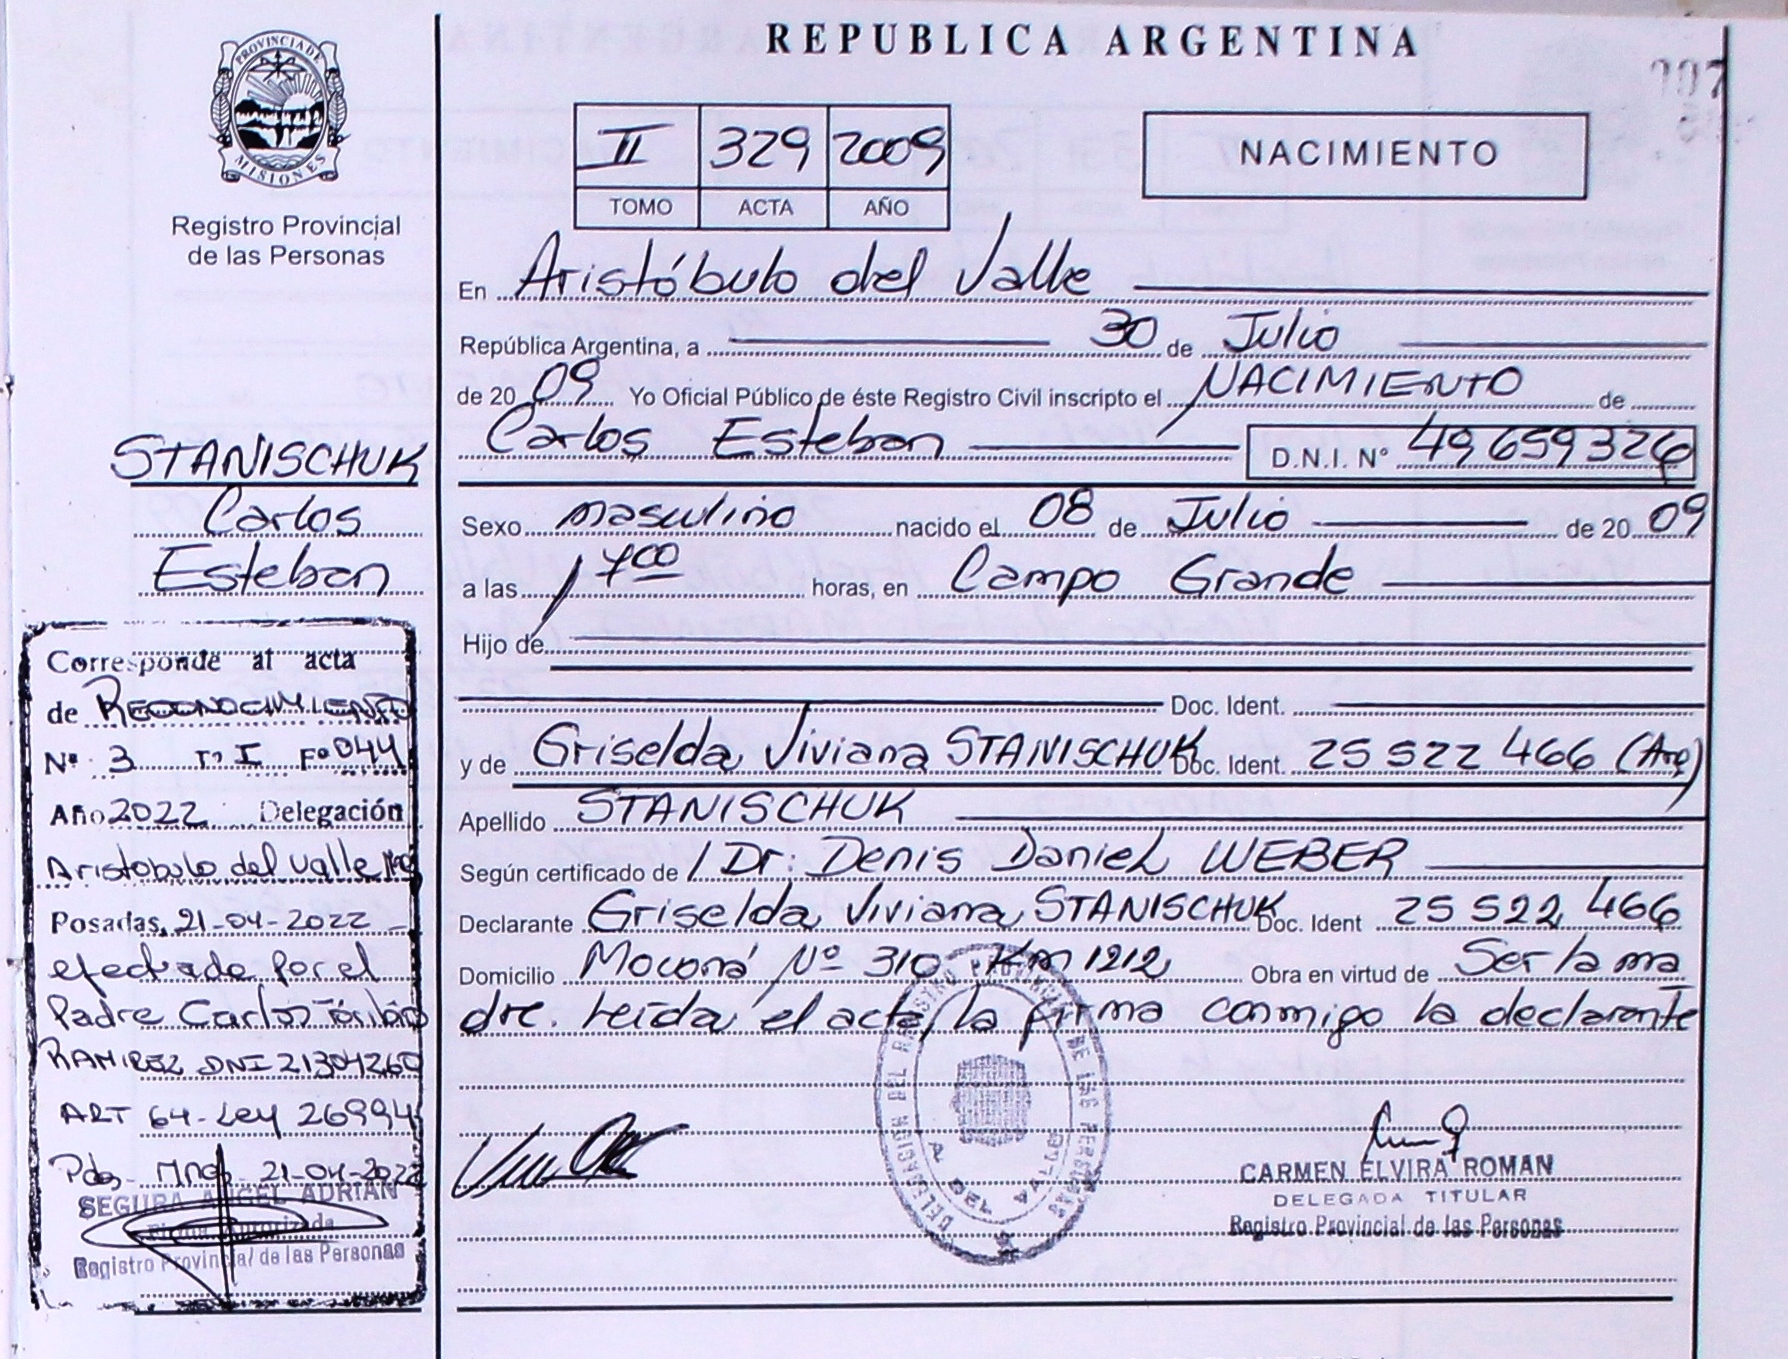 REPUBLICA ARGENTINA
PROVINCIA DE
MISIONES
Registro Provincial
de las Personas
II 329 2009
TOMO ACTA AÑO
NACIMIENTO
En Aristóbulo del Valle
República Argentina, a 30 de Julio
de 2009 Yo Oficial Público de éste Registro Civil inscripto el NACIMIENTO de
Carlos Esteban D.N.I. N° 49 659 326
Sexo masculino nacido el 08 de Julio de 2009
a las 1700 horas, en Campo Grande
Hijo de
Doc. Ident.
y de Griselda Viviana STANISCHUK Doc. Ident. 25 522 466 (Arg)
Apellido STANISCHUK
Según certificado de Dr: Denis Daniel WEBER
Declarante Griselda Viviana STANISCHUK Doc. Ident 25 522 466
Domicilio Moconá Nº 310 Km 1212 Obra en virtud de Ser la ma
dre. Leída el acta, la firma conmigo la declarante
CARMEN ELVIRA ROMAN
DELEGADA TITULAR
Registro Provincial de las Personas
DELEGACION DEL REGISTRO PROVINCIAL DE LAS PERSONAS
A. DEL VALLE
STANISCHUK
Carlos
Esteban
Corresponde al acta
de RECONOCIMIENTO
Nº 3 Tº I Fº 044
Año 2022 Delegación
Aristobulo del Valle Mnes
Posadas, 21-04-2022
efectuado por el
Padre Carlos Toribio
RAMIREZ DNI 21304260
ART 64-Ley 26994
Pdas- Mnes 21-04-2022
SEGURA ANGEL ADRIAN
Firma Autorizada
Registro Provincial de las Personas